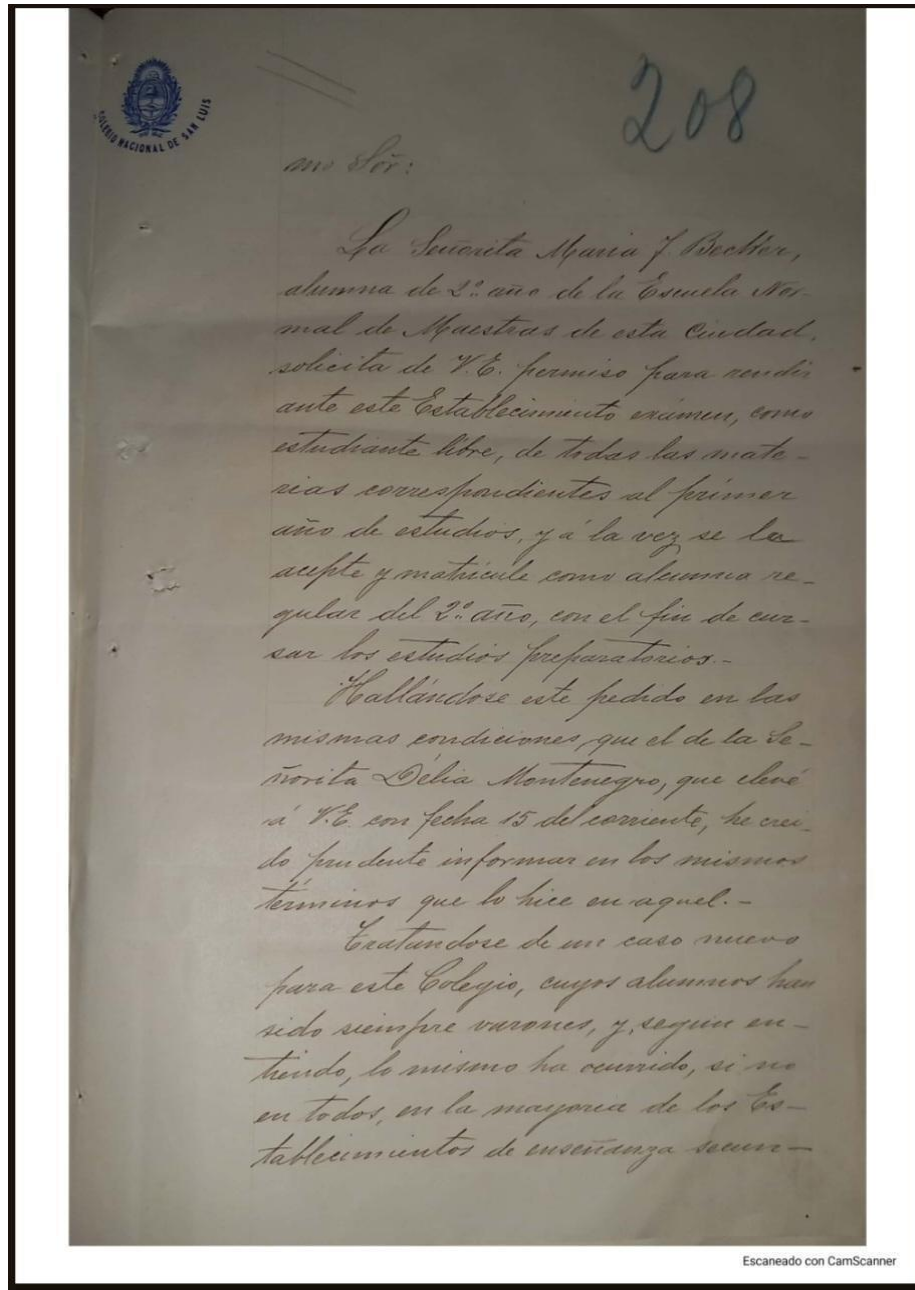 COLEGIO NACIONAL DE SAN LUIS
208
mo Señ:
La Señorita Maria J. Becker,
alumna de 2º año de la Escuela Nor-
mal de Maestras de esta Ciudad,
solicita de V.E. permiso para rendir
ante este Establecimiento exámen, como
estudiante libre, de todas las mate-
rias correspondientes al primer
año de estudios, y á la vez se la
acepte y matricule como alumna re-
gular del 2º año, con el fin de cur-
sar los estudios preparatorios.-
Hallándose este pedido en las
mismas condiciones que el de la Se-
ñorita Délia Montenegro, que elevé
á V.E. con fecha 15 del corriente, he crei-
do prudente informar en los mismos
términos que lo hice en aquel.-
Tratandose de un caso nuevo
para este Colegio, cuyos alumnos han
sido siempre varones, y, segun en-
tiendo, lo mismo ha ocurrido, si no
en todos, en la mayoria de los Es-
tablecimientos de enseñanza secun-
Escaneado con CamScanner